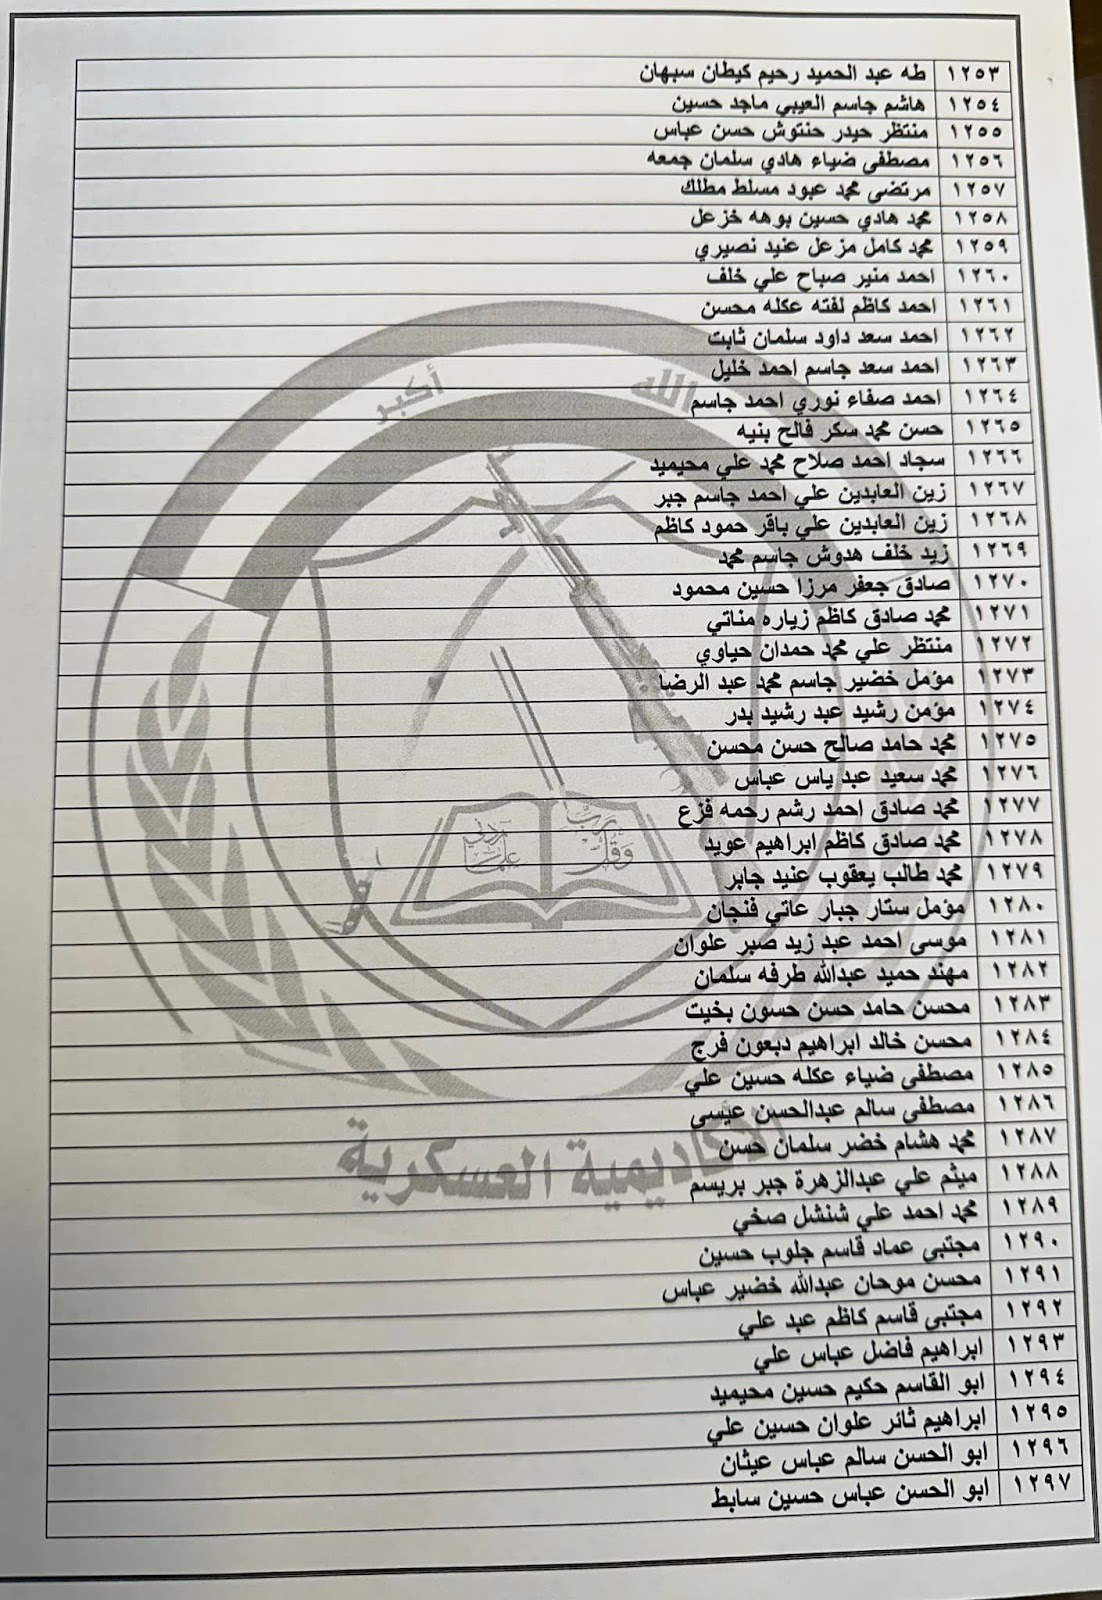 ١٢٥٣ طه عبد الحميد رحيم كيطان سبهان
١٢٥٤ هاشم جاسم العيبي ماجد حسين
١٢٥٥ منتظر حيدر حنتوش حسن عباس
١٢٥٦ مصطفى ضياء هادي سلمان جمعه
١٢٥٧ مرتضى محمد عبود مسلط مطلك
١٢٥٨ محمد هادي حسين بوهه خزعل
١٢٥٩ محمد كامل مزعل عنيد نصيري
١٢٦٠ احمد منير صباح علي خلف
١٢٦١ احمد كاظم لفته عكله محسن
١٢٦٢ احمد سعد داود سلمان ثابت
١٢٦٣ احمد سعد جاسم احمد خليل
١٢٦٤ احمد صفاء نوري احمد جاسم
١٢٦٥ حسن محمد سكر فالح بنيه
١٢٦٦ سجاد احمد صلاح محمد علي محيميد
١٢٦٧ زين العابدين علي احمد جاسم جبر
١٢٦٨ زين العابدين علي باقر حمود كاظم
١٢٦٩ زيد خلف هدوش جاسم محمد
١٢٧٠ صادق جعفر مرزا حسين محمود
١٢٧١ محمد صادق كاظم زياره مناتي
١٢٧٢ منتظر علي محمد حمدان حياوي
١٢٧٣ مؤمل خضير جاسم محمد عبد الرضا
١٢٧٤ مؤمن رشيد عبد رشيد بدر
١٢٧٥ محمد حامد صالح حسن محسن
١٢٧٦ محمد سعيد عبد ياس عباس
١٢٧٧ محمد صادق احمد رشم رحمه فزع
١٢٧٨ محمد صادق كاظم ابراهيم عويد
١٢٧٩ محمد طالب يعقوب عنيد جابر
١٢٨٠ مؤمل ستار جبار عاتي فنجان
١٢٨١ موسى احمد عبد زيد صبر علوان
١٢٨٢ مهند حميد عبدالله طرفه سلمان
١٢٨٣ محسن حامد حسن حسون بخيت
١٢٨٤ محسن خالد ابراهيم دبعون فرج
١٢٨٥ مصطفى ضياء عكله حسين علي
١٢٨٦ مصطفى سالم عبدالحسن عيسى
١٢٨٧ محمد هشام خضر سلمان حسن
١٢٨٨ ميثم علي عبدالزهرة جبر بريسم
١٢٨٩ محمد احمد علي شنشل صخي
١٢٩٠ مجتبى عماد قاسم جلوب حسين
١٢٩١ محسن موحان عبدالله خضير عباس
١٢٩٢ مجتبى قاسم كاظم عبد علي
١٢٩٣ ابراهيم فاضل عباس علي
١٢٩٤ ابو القاسم حكيم حسين محيميد
١٢٩٥ ابراهيم ثائر علوان حسين علي
١٢٩٦ ابو الحسن سالم عباس عيثان
١٢٩٧ ابو الحسن عباس حسين سابط
الله أكبر
وقل رب زدني علما
الأكاديمية العسكرية